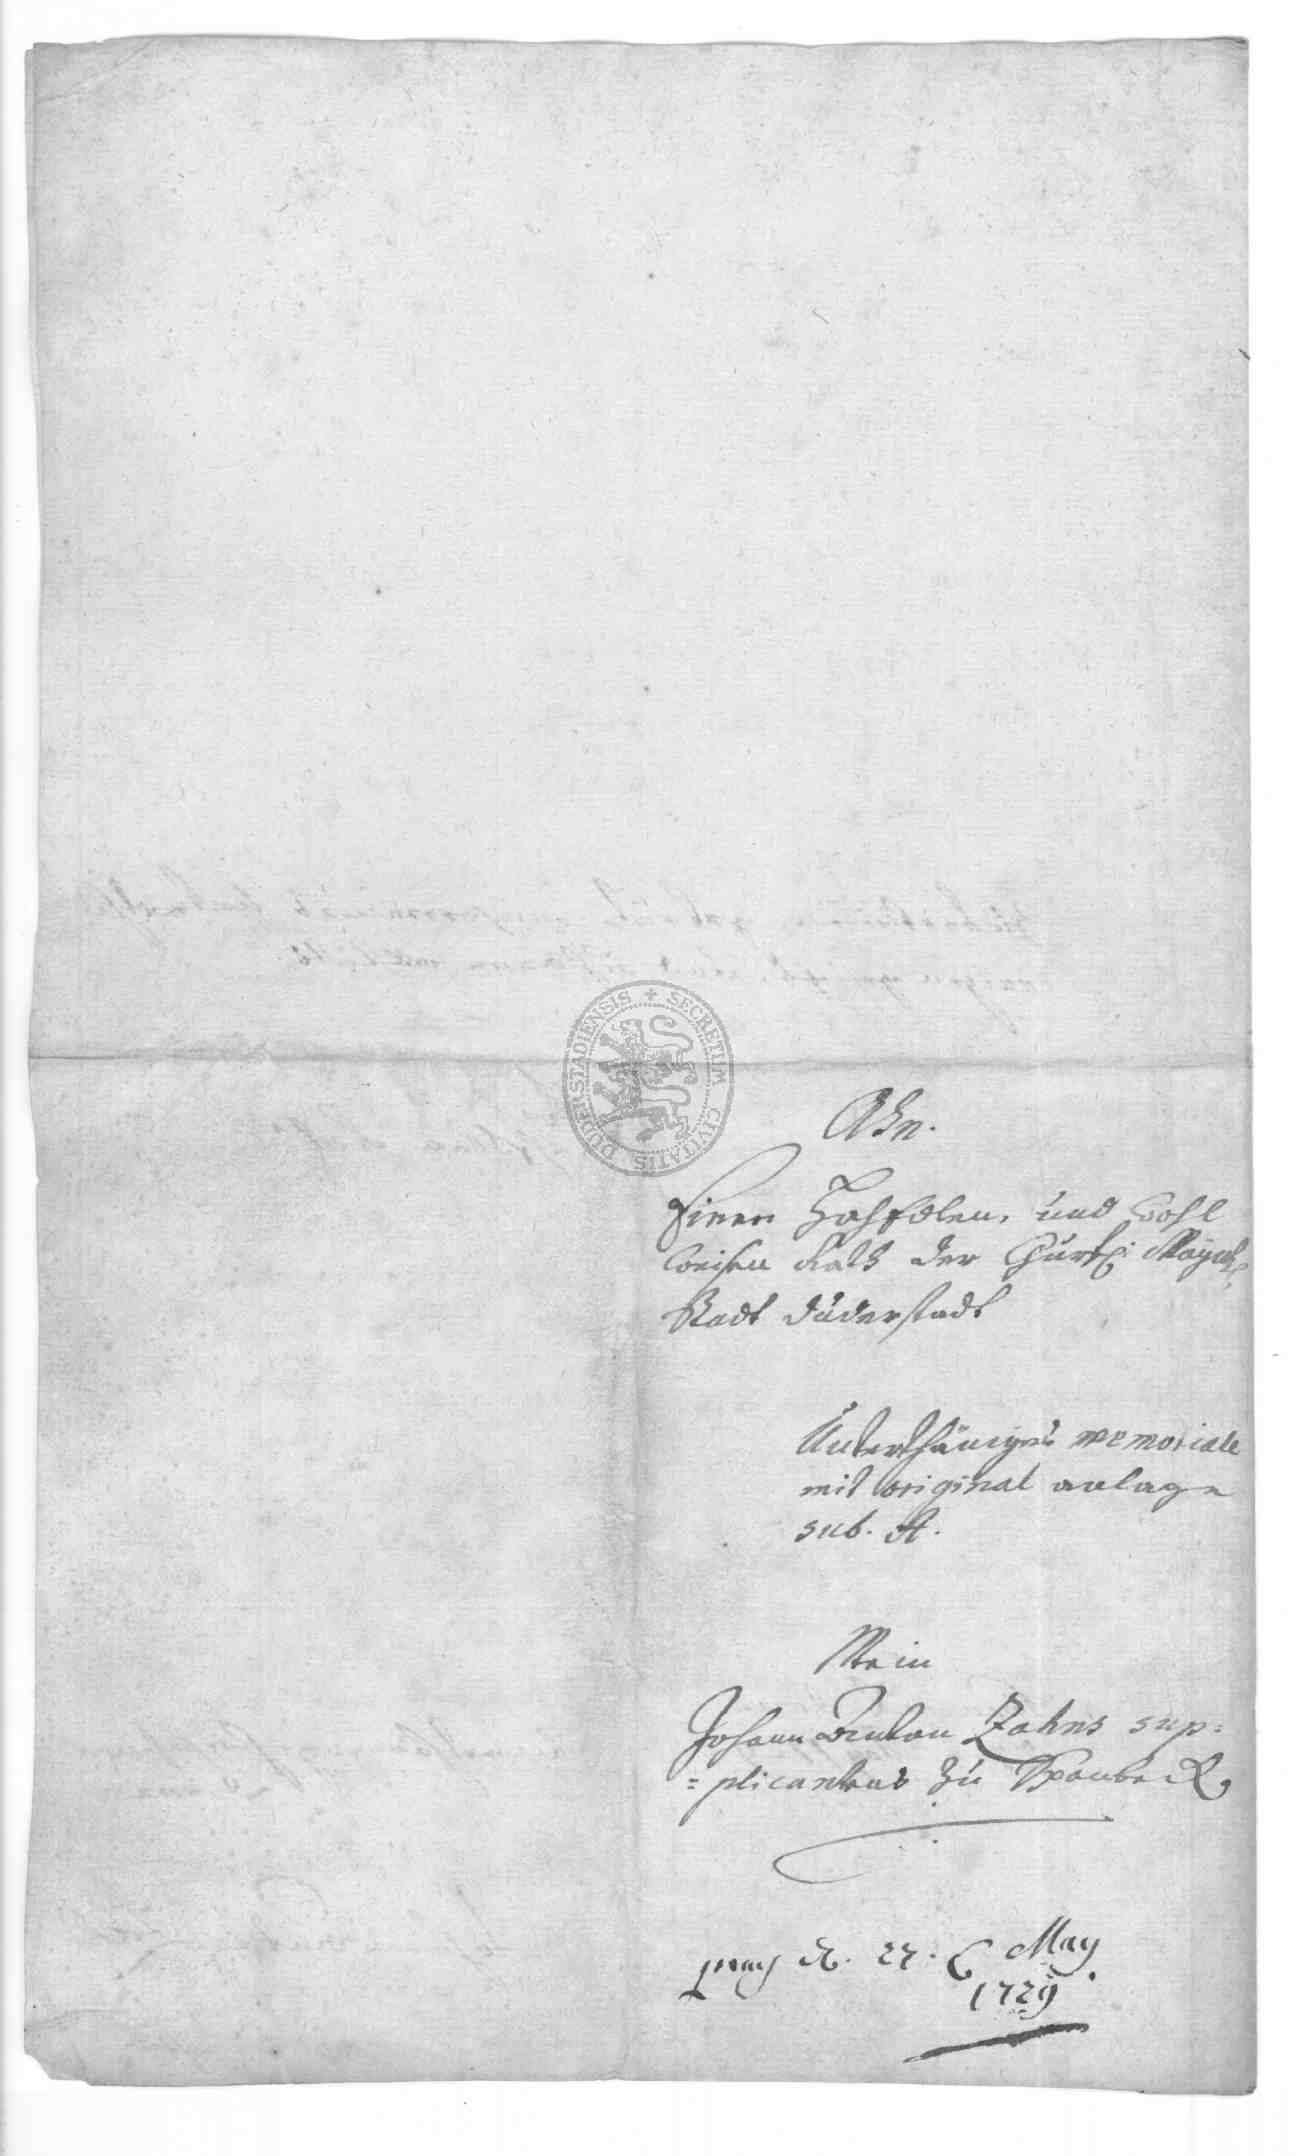 SECRETUM CIVITATIS DUDERSTADIENSIS
Ahn.
Einen HochEdlen, und Wohl
Weisen Rath der Churf. Mayntz.
Stadt Duderstadt
Unterthäniges memoriale
mit original anlage
sub. A.
Mein
Johann Zahns sup=
=plicantens zu
d. 27. May
1729